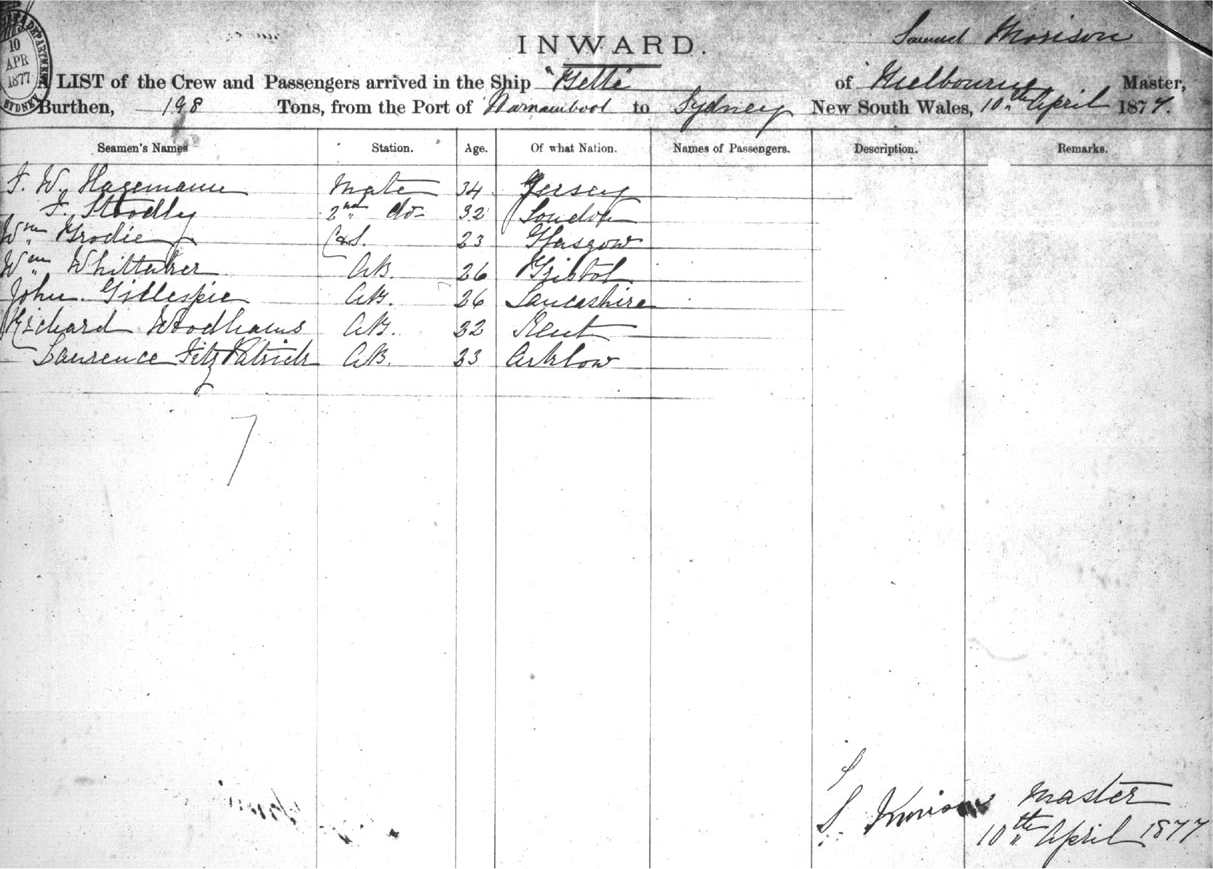 10
APR
1877
SYDNEY
INWARD.
Samuel Morison
LIST of the Crew and Passengers arrived in the Ship "Bella" of Melbourne Master,
Burthen, 198 Tons, from the Port of Warnambool to Sydney New South Wales, 10th April 1877.
Seamen's Names Station. Age. Of what Nation. Names of Passengers. Description. Remarks.
F. W. Hagemann Mate 34 Jersey
F. Stoodly 2nd do 32 London
Wm Brodie C&S. 23 Glasgow
Wm Whittaker AB. 26 Bristol
John Gillespie AB. 26 Lancashire
Richard Woodhams AB. 32 Kent
Laurence FitzPatrick AB. 23 Arklow
7
S. Morison Master
10th April 1877